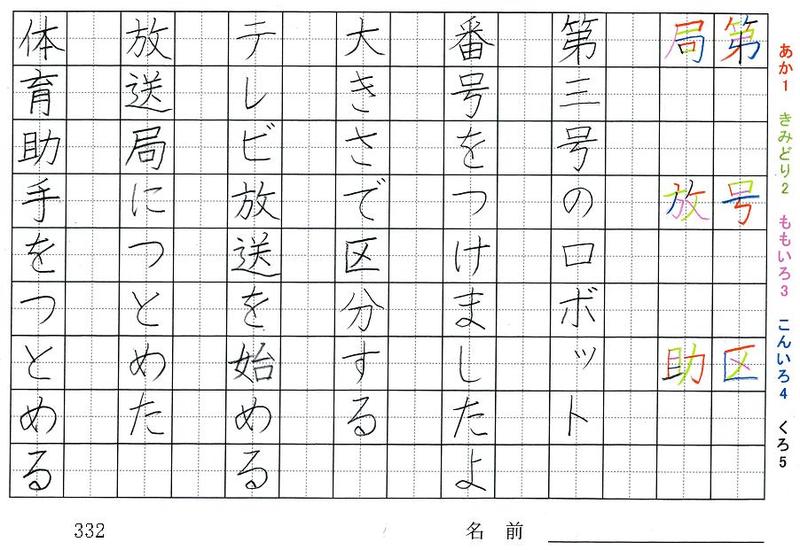 あか1 きみどり2 ももいろ3 こんいろ4 くろ5
第 号 区
局 放 助
第三号のロボット
番号をつけましたよ
大きさで区分する
テレビ放送を始める
放送局につとめた
体育助手をつとめる
332
名前